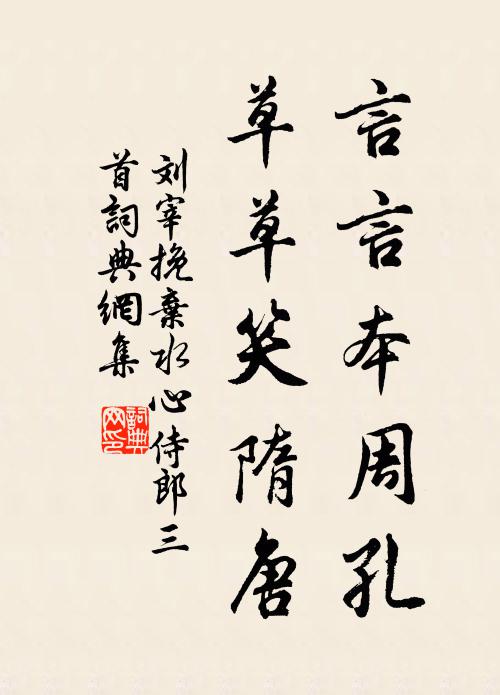 言言本周孔
草草笑隋唐
刘宰挽棄水心侍郎三
首詞典網集
詞典
网印